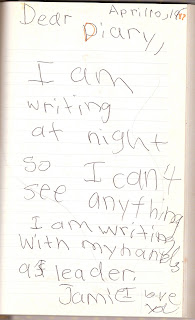 Dear April 10, 19
Diary,
I am
writing
at night
so I can't
see anything
I am writing
With my hands
as leader.
Jamie I love